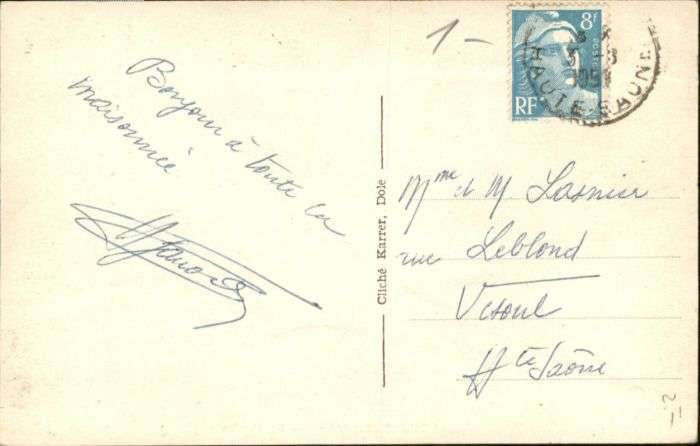 1-
8F
POSTES
RF
HAUTE-SAONE
Bonjour à toute la
maisonnée
Cliché Karrer, Dole
Mme et M. Lasnier
rue Leblond
Vesoul
Hte Saône